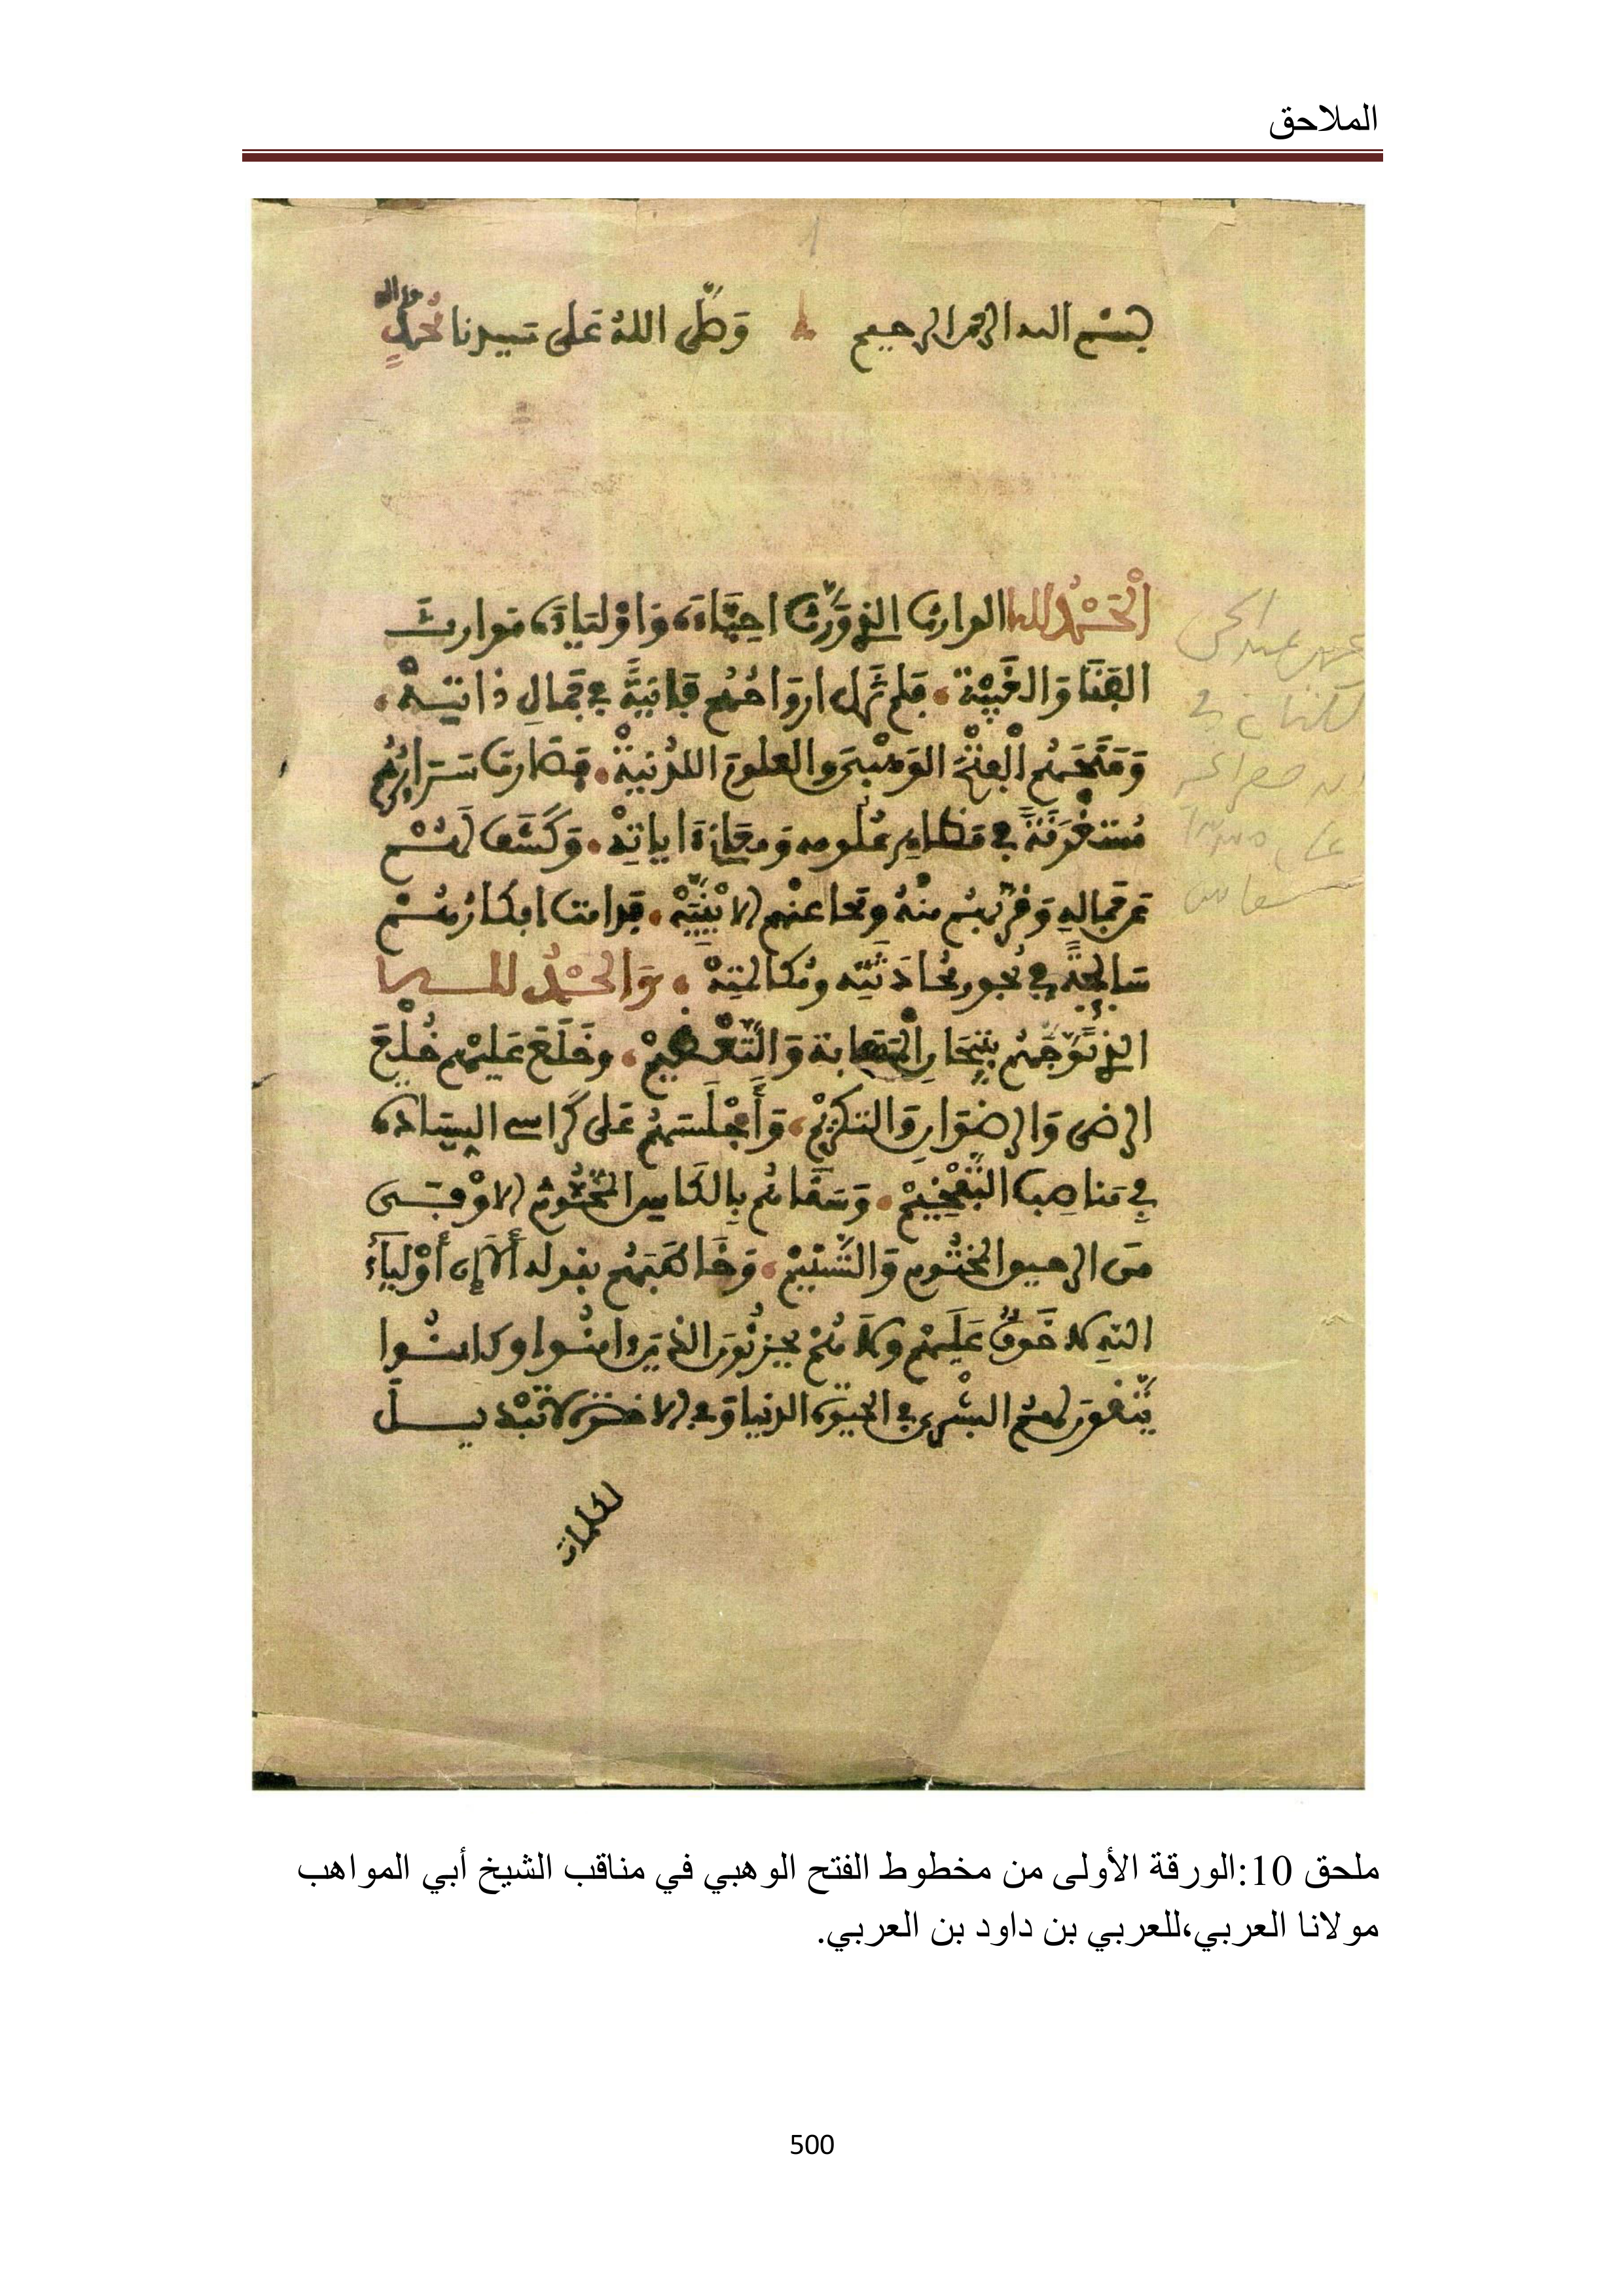 الملاحق
1
بسم الله الرحمن الرحيم وَصَلَّى اللهُ عَلى سيدنا مُحَمَّدٍ وءاله
الْحَمْدُ لله الوارث الذي وَرَّثَ احِبَّاءَهُ وَاوْلِيَاءَهُ مَوارِثَ
الفَنَا وَالغَيْبَة فلم تَزَل ارْوَاحُهُم فَانِيَةً في جَمالِ ذاتِيَهْ
وَمَنَحَهُم الْفَتْحَ الوَهْبِيَّ والعلومَ اللدُنِيَةْ فَصَارت سَرَائِرُهُم
مُسْتَغْرِقَةً في مَظَاهِرِ عُلُومِه وَمعَانِي ءاياتِهْ وَكَشَفَ لَهُمْ
عن جَمالهِ وَقَرَّبَهُم مِنْهُ ومَحا عنْهم الايْنِيَّهْ فدامت افكارُهُمْ
سَابِحَةً في بُحورِ مُحَادَثَتِه ومُكَالمَتِهْ وَالحَمْدُ لله
الذي تَوَّجَهُم بِتِيجَانِ المَهَابة وَالتَّعْظِيمْ وخَلَعَ عَليْهم خُلَعَ
الرضى وَالرِضْوَانِ وَالتكرِيمْ وَأَجْلَسَهُم عَلى كَراسي السِيَادة
في مَناصِب التَّفْخِيمْ وَسَقَاهُم بِالكَاسِ المَخْتُومِ الاوْفى
مِنَ الرحيق المختُومِ وَالتَّسْنِيمْ وَخَاطَبَهُم بقوله أَلَا إِن أَوْلِيَاءَ
اللهِ لا خَوفٌ عَلَيهِمْ وَلَا هُمْ يحزَنُونَ الذينَ ءامنُوا وكانُوا
يَتَّقونَ لهمُ البُشْرى في الحيوة الدنيا وَفي الاخرة لا تَبْدِيلَ
لكلمات
ملحق 10:الورقة الأولى من مخطوط الفتح الوهبي في مناقب الشيخ أبي المواهب
مولانا العربي،للعربي بن داود بن العربي.
500